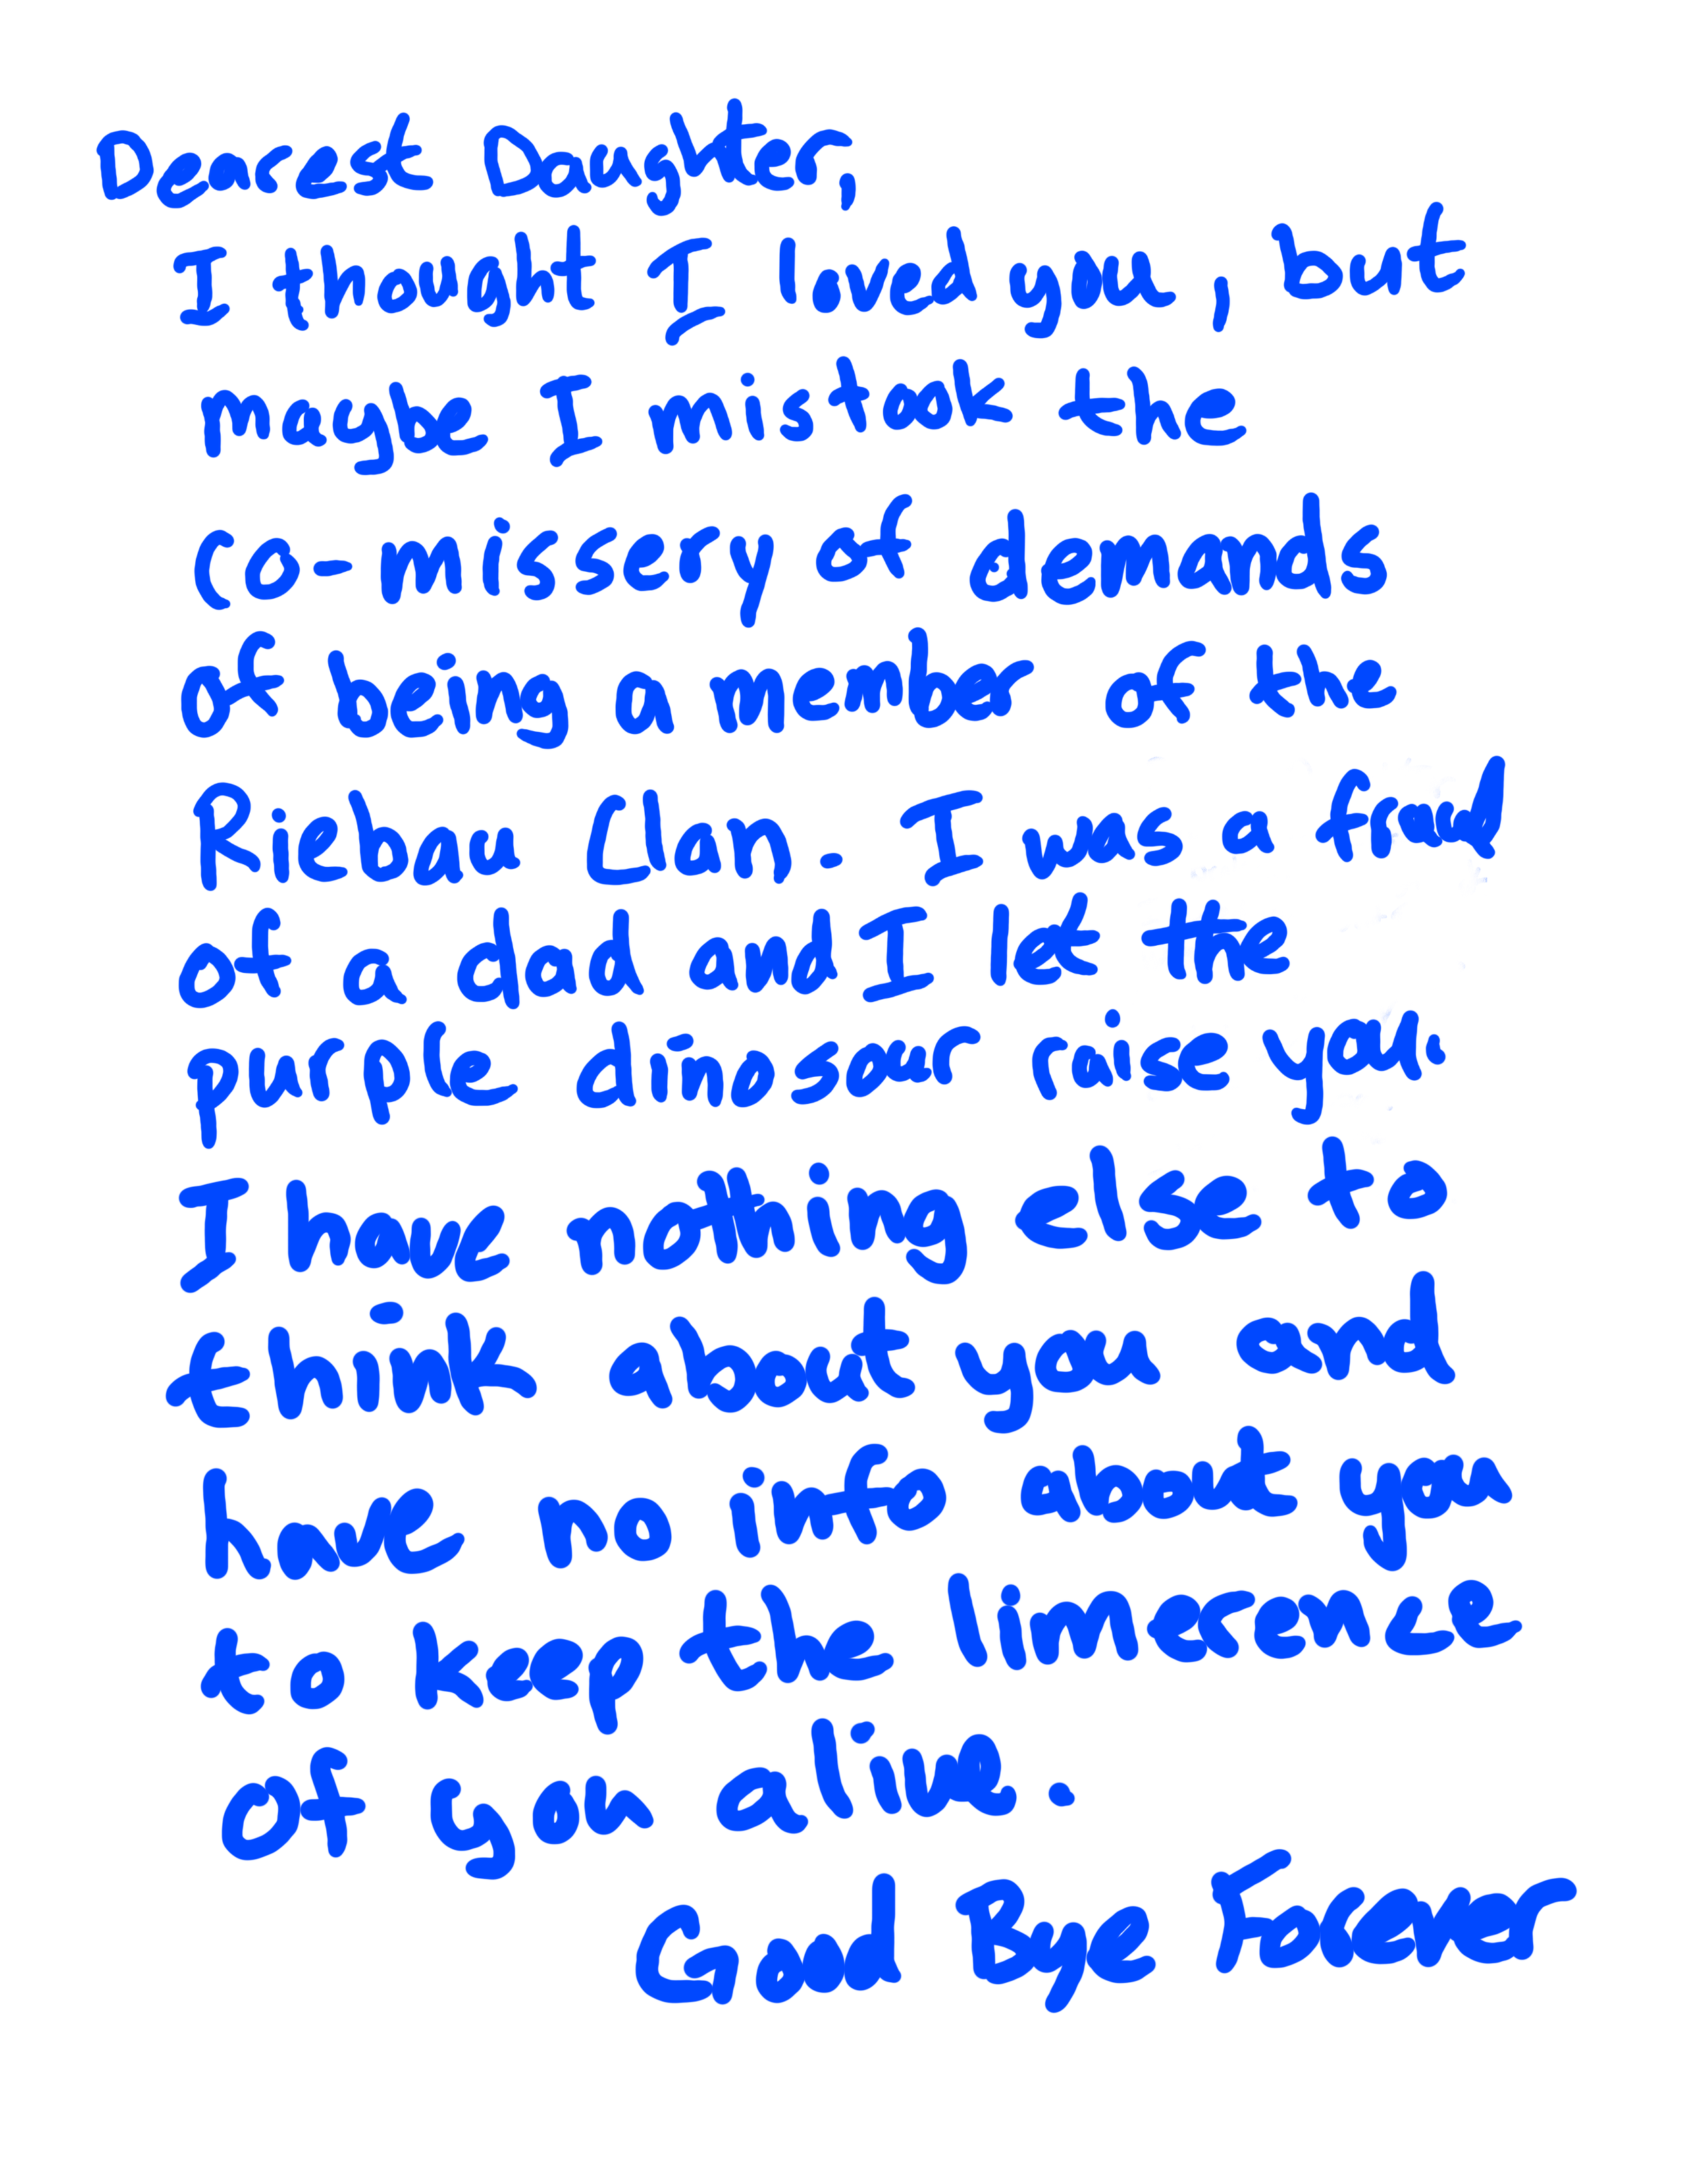 Dearest Daughter,
I thought I loved you, but
maybe I mistook the
co-missery of demands
of being a member of the
Riebau Clan. I was a fraud
of a dad and I let the
purple dinosaur raise you.
I have nothing else to
think about you and
have no info about you
to keep the limerence
of you alive.
Good Bye Forever